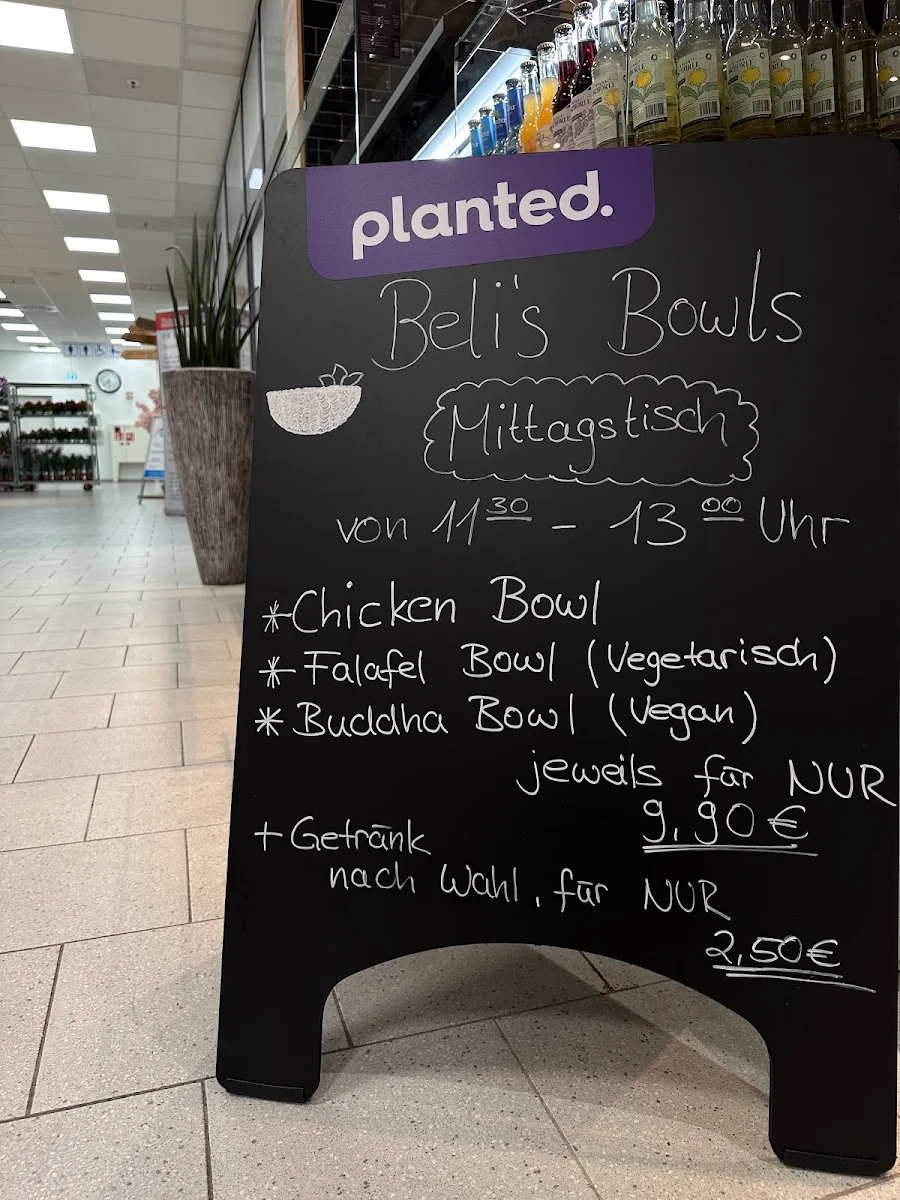 planted.
Beli's Bowls
Mittagstisch
von 11 30 - 13 00 Uhr
*Chicken Bowl
*Falafel Bowl (Vegetarisch)
*Buddha Bowl (Vegan)
jeweils für NUR
9,90€
+Getränk
nach Wahl, für NUR
2,50€